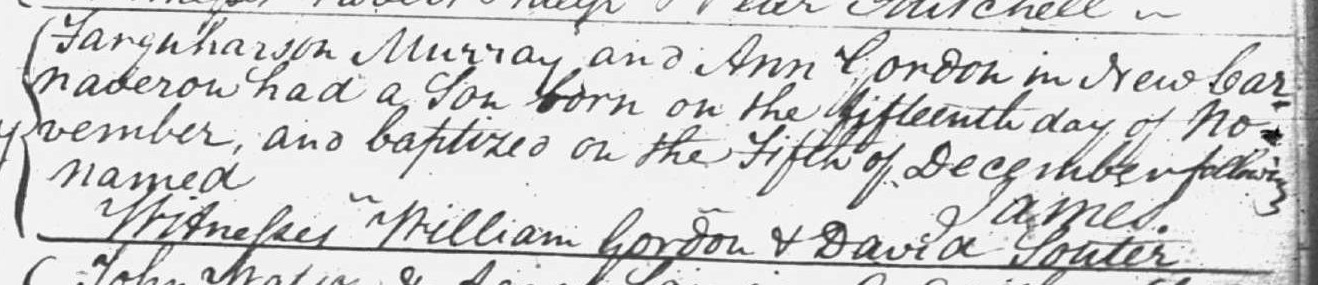 Peter Mitchell
Farquharson Murray and Ann Gordon in New Car-
naveron had a Son born on the fifteenth day of No-
vember, and baptized on the Fifth of December following
named
James.
Witnesses William Gordon & David Souter
John